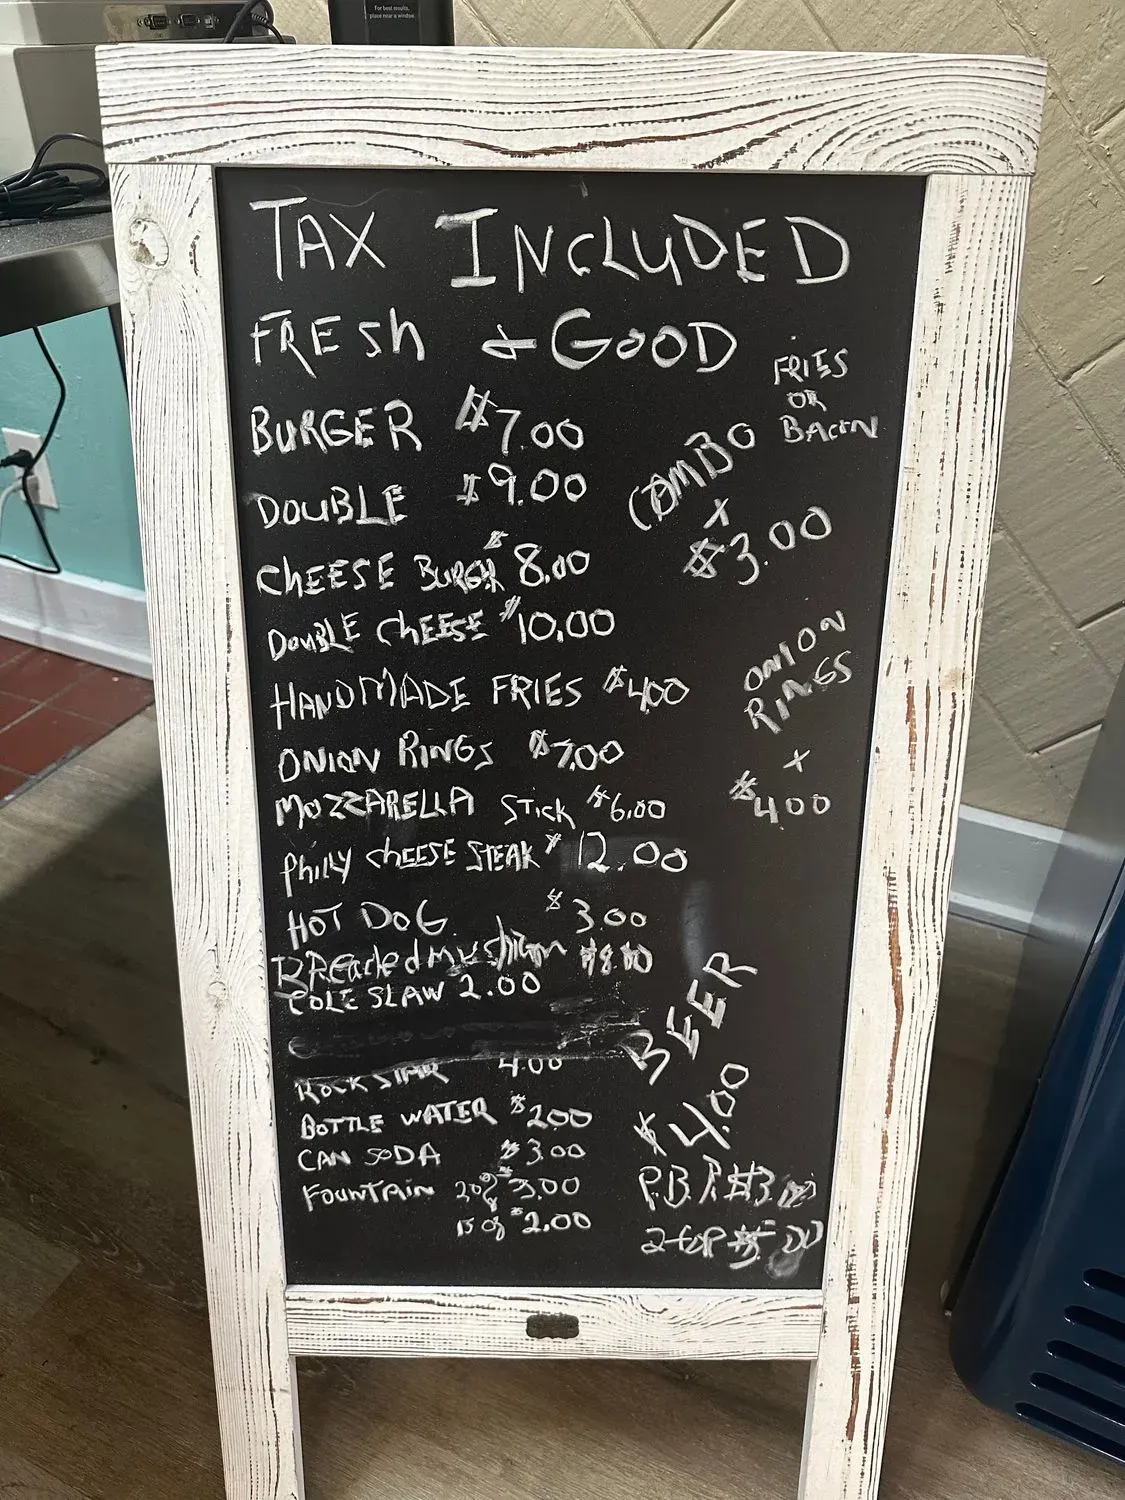 For best results,
place near a window.
TAX INCLUDED
FRESh & GOOD
BURGER $7.00
DOUBLE $9.00
ChEESE BURGER $8.00
DOUBLE ChEESE $10.00
HANDMADE FRIES $4.00
ONION RINGS $7.00
MOZZARELLA STICK $6.00
PhILLY ChEESE STEAK $12.00
HOT DOG $3.00
BREaded mushrom $8.00
COLE SLAW 2.00
ROCKSTAR 4.00
BOTTLE WATER $2.00
CAN SODA $3.00
FOUNTAIN 20oz $3.00
15 oz $2.00
FRIES
OR
BACON
COMBO
X
$3.00
ONION
RINGS
X
$400
BEER
$4.00
P.B.R $3.00
2 foR $5.00